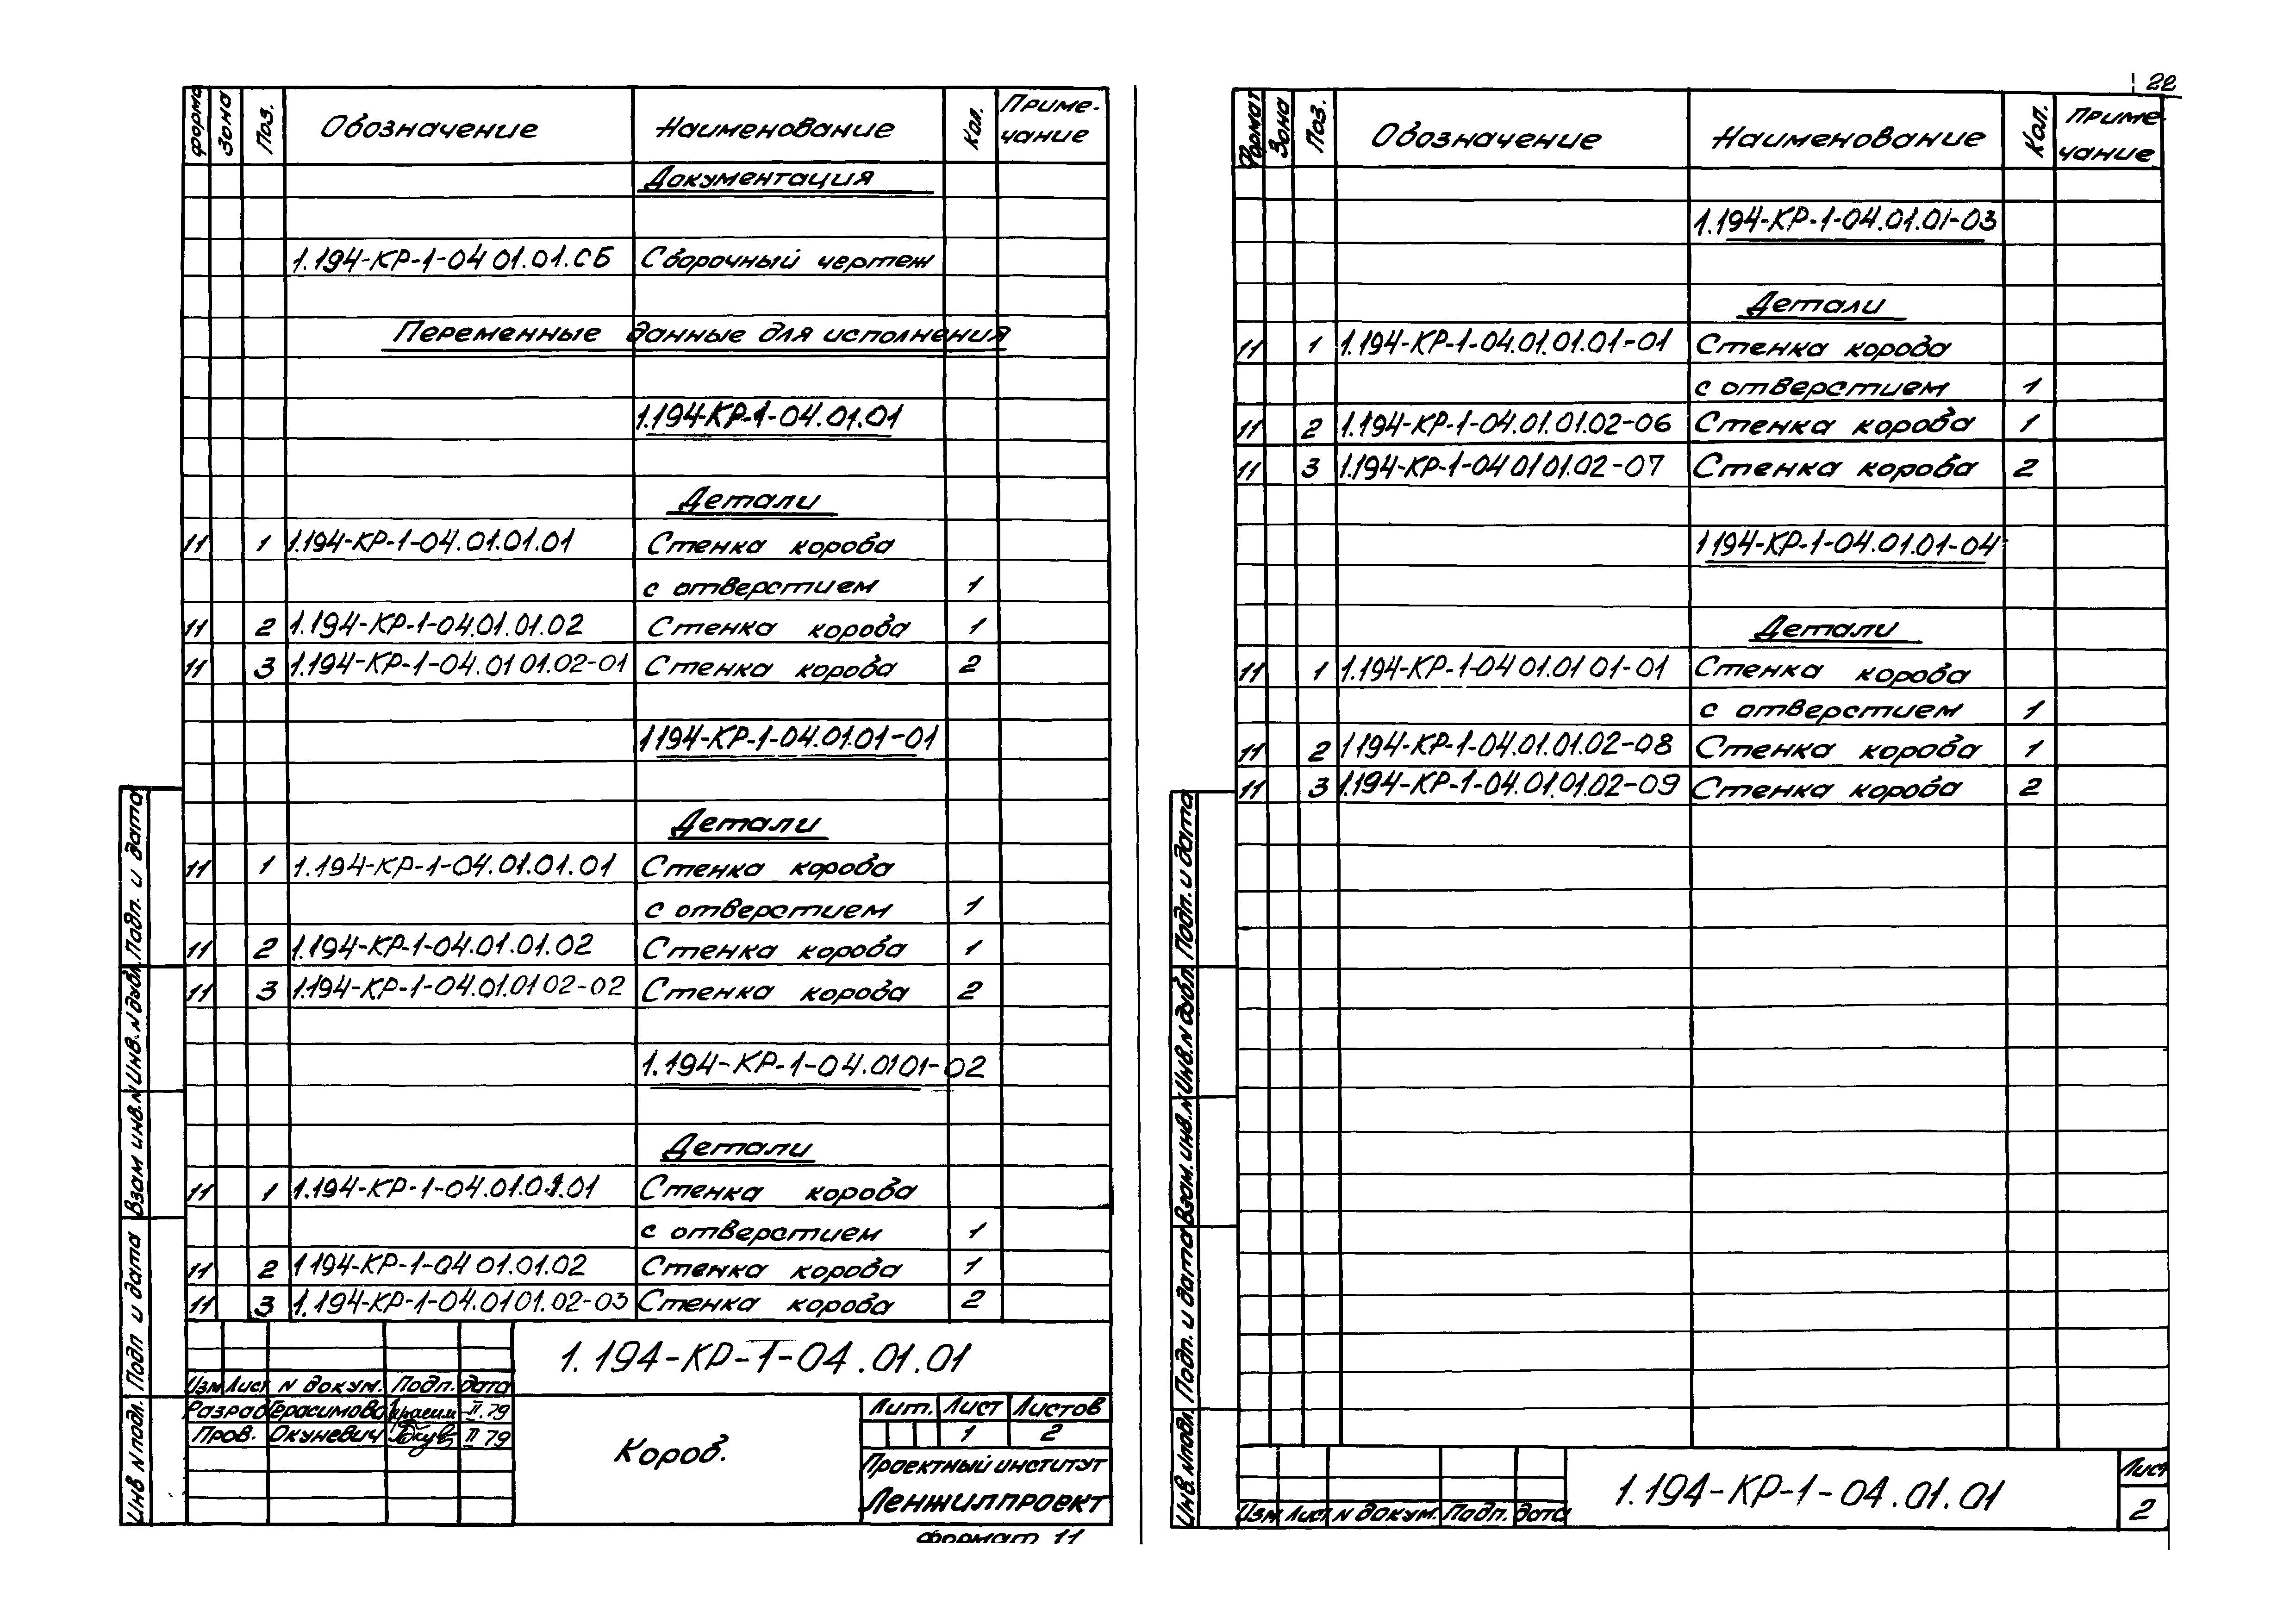 Форма Зона Поз. Обозначение Наименование Кол. Приме-
чание
Документация
1.194-КР-1-04 01.01.СБ Сборочный чертеж
Переменные данные для исполнения
1.194-КР-1-04.01.01
Детали
11 1 1.194-КР-1-04.01.01.01 Стенка короба
с отверстием 1
11 2 1.194-КР-1-04.01.01.02 Стенка короба 1
11 3 1.194-КР-1-04.01 01.02-01 Стенка короба 2
1194-КР-1-04.01.01-01
Детали
11 1 1.194-КР-1-04.01.01.01 Стенка короба
с отверстием 1
11 2 1.194-КР-1-04.01.01.02 Стенка короба 1
11 3 1.194-КР-1-04.01.01 02-02 Стенка короба 2
1.194-КР-1-04.0101-02
Детали
11 1 1.194-КР-1-04.01.01.01 Стенка короба
с отверстием 1
11 2 1194-КР-1-04 01.01.02 Стенка короба 1
11 3 1.194-КР-1-04.0101.02-03 Стенка короба 2
1.194-КР-1-04.01.01
Изм Лист N докум. Подп. дата
Разраб Герасимова Герасим II.79
Пров. Окуневич Окув II 79
Короб.
Лит. Лист Листов
1 2
Проектный институт
Ленжилпроект
Формат 11
Подп. и дата
Инв.N дубл.
Взам инв.N
Подп и дата
Инв N подл.
22
Формат Зона Поз. Обозначение Наименование Кол. Приме-
чание
1.194-КР-1-04.01.01-03
Детали
11 1 1.194-КР-1-04.01.01.01-01 Стенка короба
с отверстием 1
11 2 1.194-КР-1-04.01.01.02-06 Стенка короба 1
11 3 1.194-КР-1-04 01 01.02-07 Стенка короба 2
1194-КР-1-04.01.01-04
Детали
11 1 1.194-КР-1-04 01.01 01-01 Стенка короба
с отверстием 1
11 2 1194-КР-1-04.01.01.02-08 Стенка короба 1
11 3 1.194-КР-1-04.01.01.02-09 Стенка короба 2
1.194-КР-1-04.01.01
Лист
2
Изм Лист N докум. Подп. дата
Подп. и дата
Инв.N дубл.
Взам.инв.N
Подп. и дата
Инв. N подл.